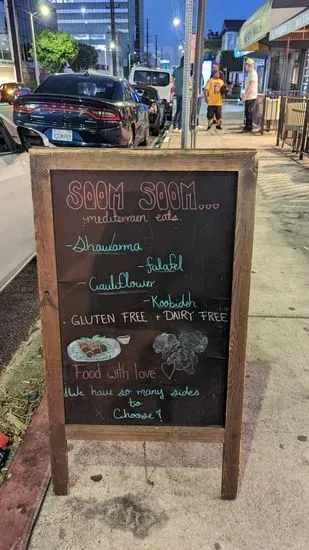 SOOM SOOM...
mediterraen eats.
-Shawarma
-falafel
-Cauliflower
-Koobideh
· GLUTEN FREE + DAIRY FREE
Food with love ♡
!We have so many sides
to
Choose!